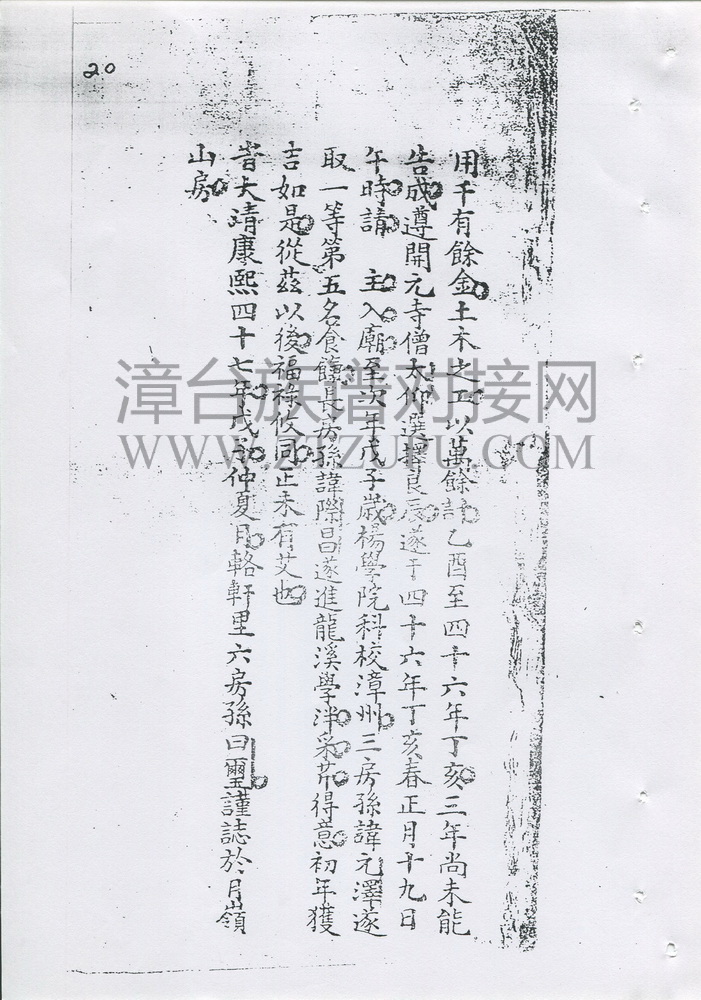 20
用千有餘金土木之工以萬餘計乙酉至四十六年丁亥三年尚未能
告成遵開元寺僧大仰選擇良辰遂于四十六年丁亥春正月十九日
午時請 主入廟至次年戊子歲楊學院科校漳州三房孫諱元澤遂
取一等第五名食餼長房孫諱際昌遂進龍溪學泮采芹得意初年獲
吉如是從茲以後福祿攸同正未有艾也
旹大清康熙四十七年戊子仲夏月輅軒里六房孫曰璽謹誌於月嶺
山房
漳台族谱对接网
WWW.ZTZUPU.COM